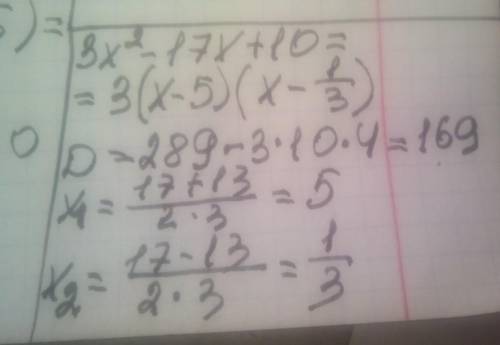 5) =
3x² - 17x + 10 =
= 3(x-5)(x - 1/3)
0
D = 289 - 3·10·4 = 169
x₁ = (17+13)/(2·3) = 5
x₂ = (17-13)/(2·3) = 1/3